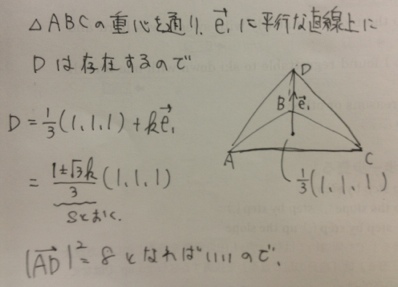 △ABCの重心を通り、e₁に平行な直線上に
Dは存在するので
D = 1/3 (1, 1, 1) + ke₁
= (1±√3k)/3 (1, 1, 1)
sとおく.
|AD|² = 8となればいいので、
D
B
e₁
A
C
1/3 (1, 1, 1)